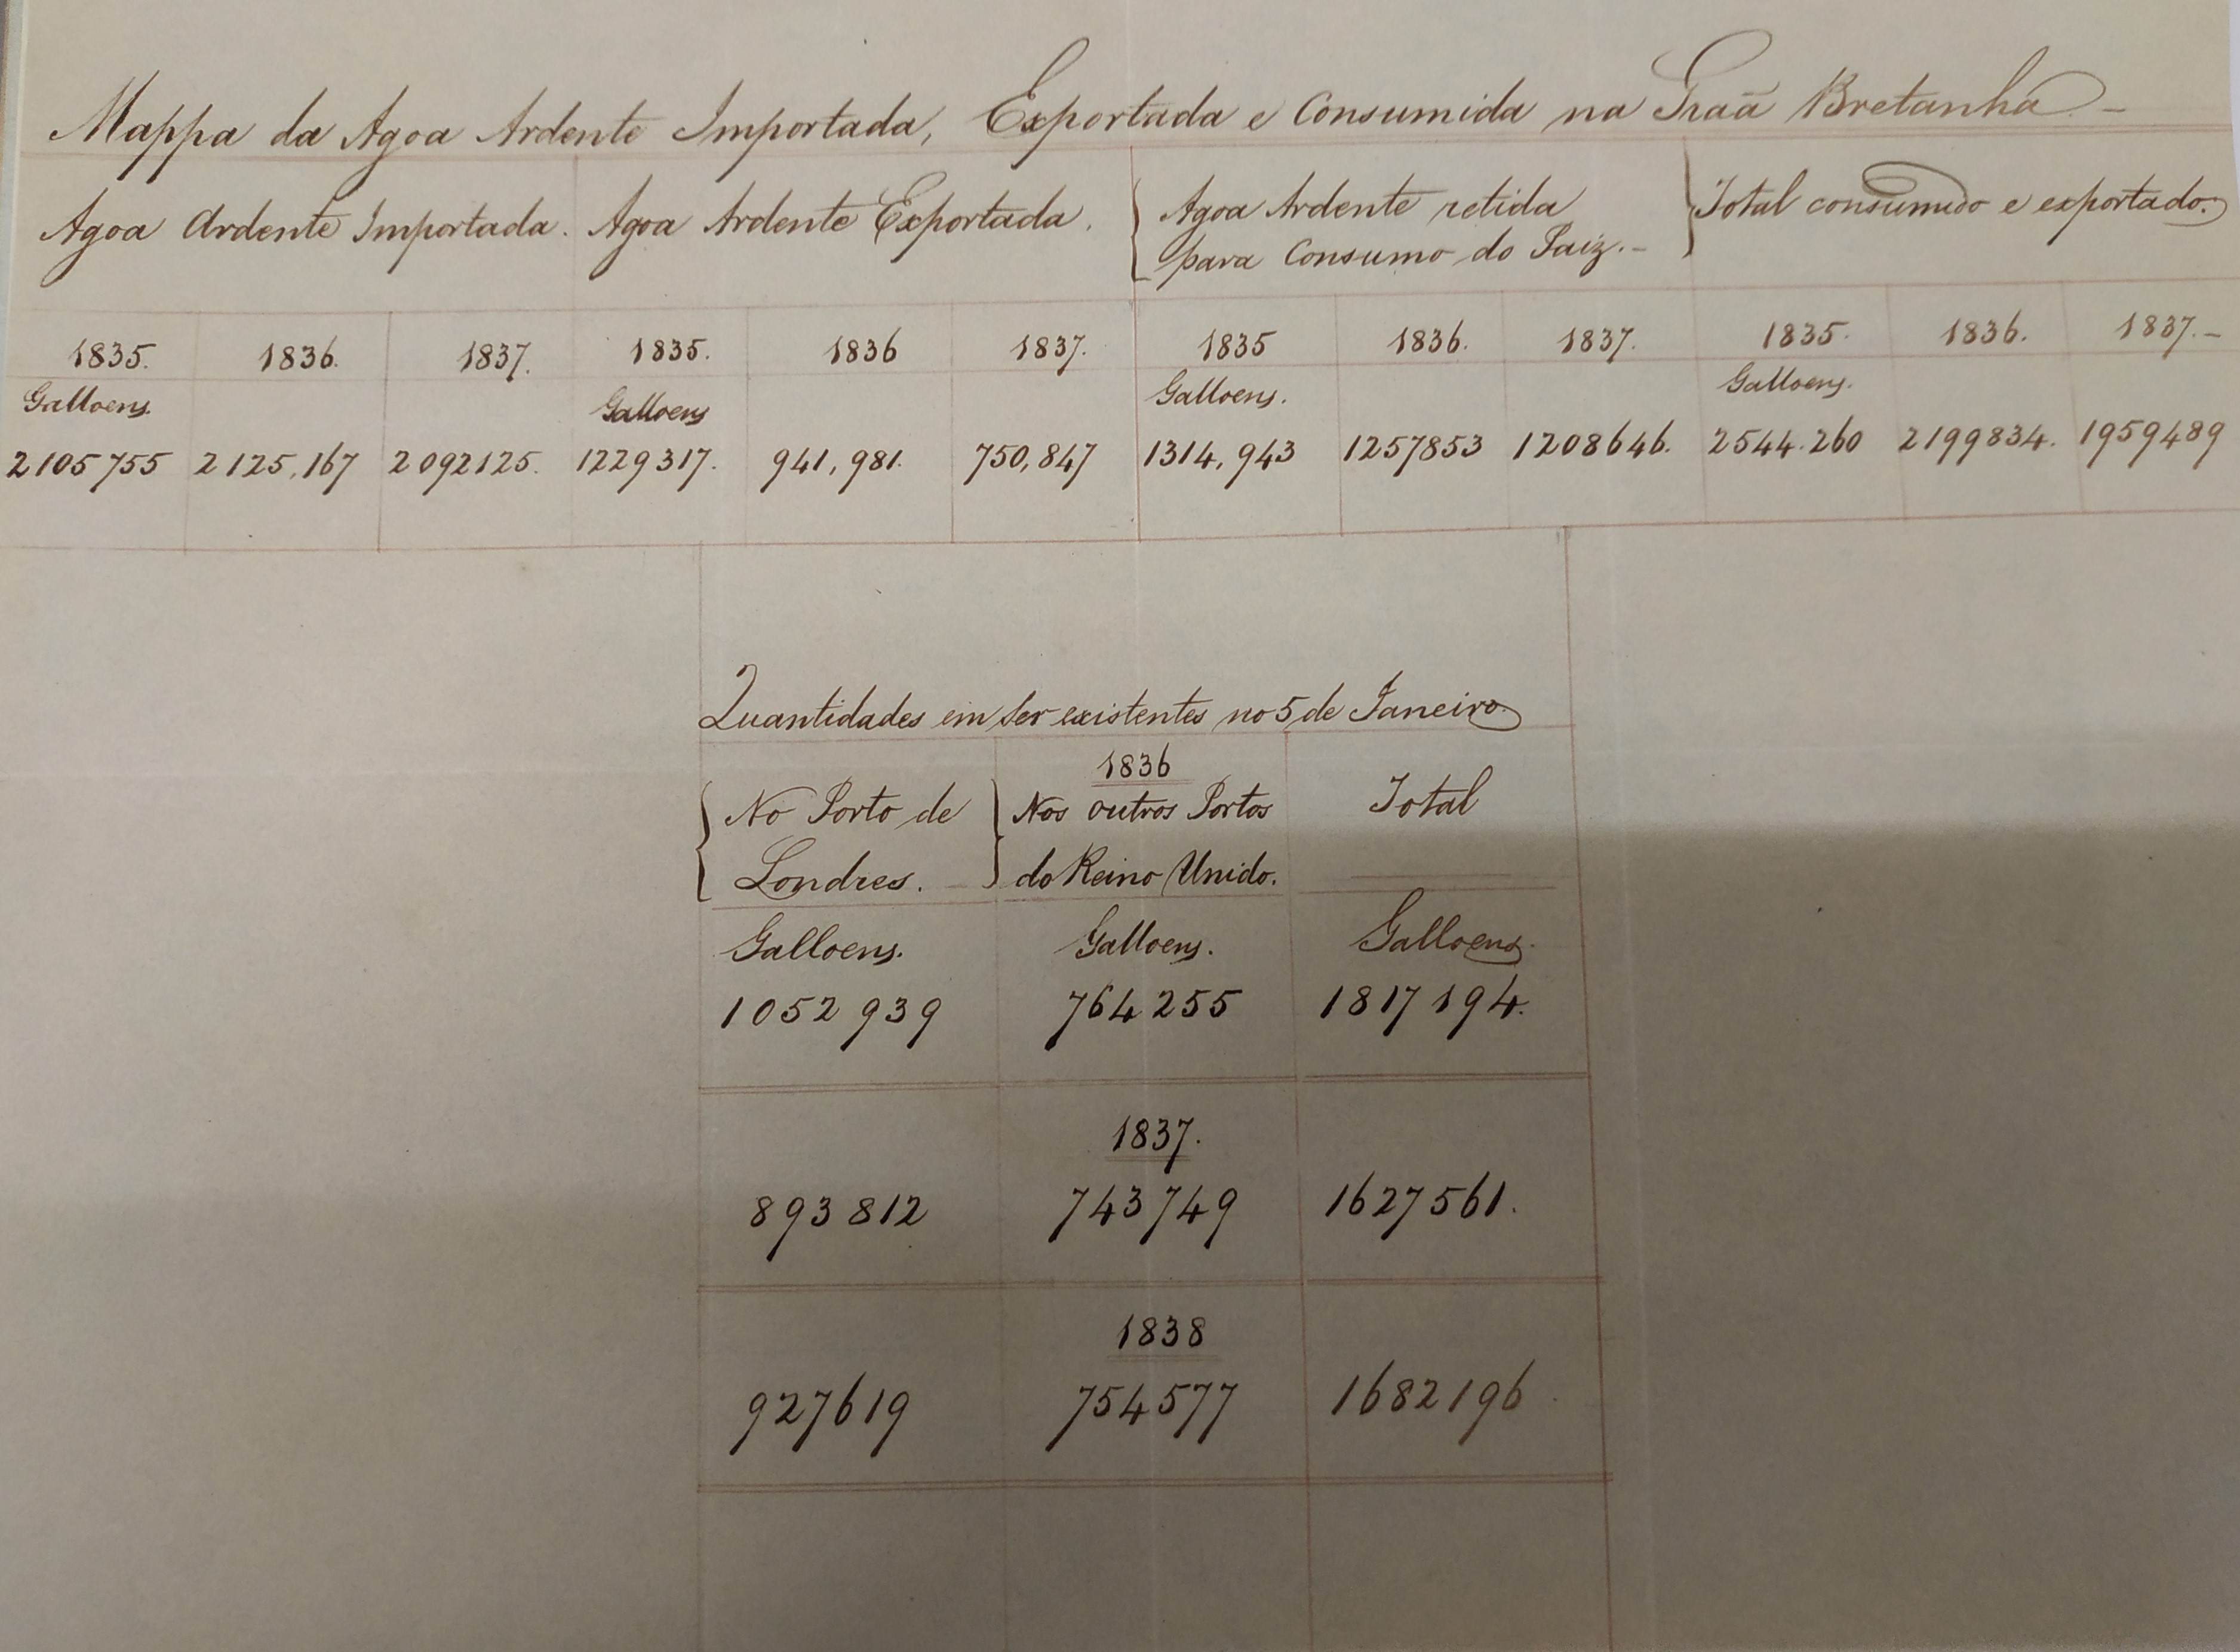 Mappa da Agoa Ardente Importada, Exportada e Consumida na Graã Bretanha –
Agoa Ardente Importada. Agoa Ardente Exportada. Agoa Ardente retida Total consumido e exportado.
para Consumo do Paiz. –
1835. 1836. 1837. 1835. 1836 1837. 1835 1836. 1837. 1835. 1836. 1837. –
Galloens. Galloens Galloens. Galloens.
2105755 2125,167 2092125. 1229317. 941,981. 750,847 1314,943 1257853 1208646. 2544.260 2199834. 1959489
Quantidades em ser existentes no 5 de Janeiro.
1836
No Porto de Nos outros Portos Total
Londres. – do Reino Unido.
Galloens. Galloens. Galloens.
1052939 764255 1817194.
1837.
893812 743749 1627561.
1838
927619 754577 1682196